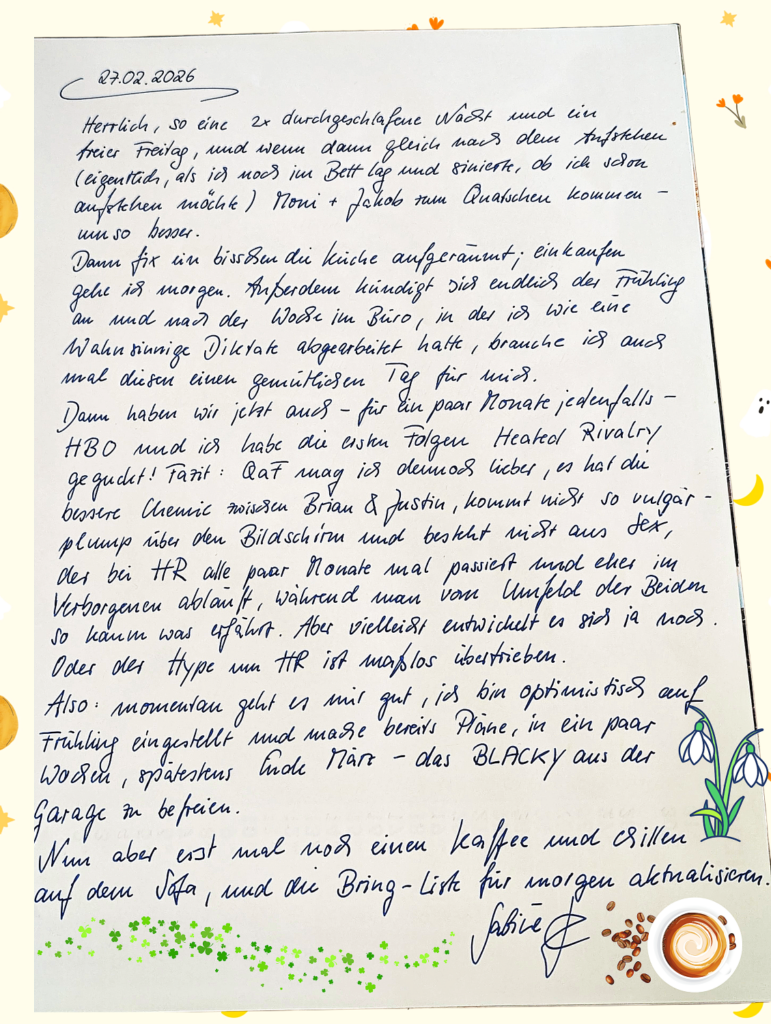 27.02.2026
Herrlich, so eine 2x durchgeschlafene Nacht und ein
freier Freitag, und wenn dann gleich nach dem Aufstehen
(eigentlich, als ich noch im Bett lag und sinierte, ob ich schon
aufstehen möchte) Moni + Jakob zum Quatschen kommen –
umso besser.
Dann fix ein bisschen die Küche aufgeräumt; einkaufen
gehe ich morgen. Außerdem kündigt sich endlich der Frühling
an und nach der Woche im Büro, in der ich wie eine
Wahnsinnige Diktate abgearbeitet hatte, brauche ich auch
mal diesen einen gemütlichen Tag für mich.
Dann haben wir jetzt auch – für ein paar Monate jedenfalls –
HBO und ich habe die ersten Folgen Heated Rivalry
geguckt! Fazit: QaF mag ich dennoch lieber, es hat die
bessere Chemie zwischen Brian & Justin, kommt nicht so vulgär-
plump über den Bildschirm und besteht nicht aus Sex,
der bei HR alle paar Monate mal passiert und eher im
Verborgenen abläuft, während man vom Umfeld der Beiden
so kaum was erfährt. Aber vielleicht entwickelt es sich ja noch.
Oder der Hype um HR ist maßlos übertrieben.
Also: momentan geht es mir gut, ich bin optimistisch auf
Frühling eingestellt und mache bereits Pläne, in ein paar
Wochen, spätestens Ende März – das BLACKY aus der
Garage zu befreien.
Nun aber erst mal noch einen Kaffee und chillen
auf dem Sofa, und die Bring-Liste für morgen aktualisieren.
Sabine